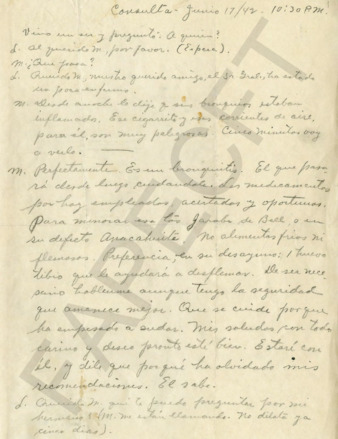 Consulta - Junio 17/42. 10:30 P.M.
Vino un ser y preguntó: A quien?
L. Al querido M, por favor. (Espera).
M. ¿Que pasa?
L. Querido M, nuestro querido amigo, el Sr. Gral. ha estado
hoy enfermo.
M. Desde anoche le dije q sus bronquios estaban
inflamados. Ese cigarrito y esas corrientes de aire,
para él, son muy peligrosas. Cinco minutos voy
a verlo. —
M. Perfectamente. Es una bronquitis. El que pasa-
rá desde luego cuidandola. Los medicamentos
por hoy empleados, acertados y oportunos.
Para minorar esa tos Jarabe de Bell o en
su defecto Anacahuite. No alimentos frios ni
flemosos. Preferencia, en su desayuno; 1 huevo
tibio que le ayudará a desflemar. De ser nece-
sario hablenme aunque tengo la seguridad
que amanece mejor. Que se cuide porque
ha empesado a sudar. Mis saludos con todo
cariño y deseo pronto esté bien. Estaré con
él, y dile que por qué ha olvidado mis
recomendaciones. El sabe.
L. Querido M, qué te puedo preguntar por mi
hermano? (M. me están llamando. No dilato ya
cinco días).
PARECET